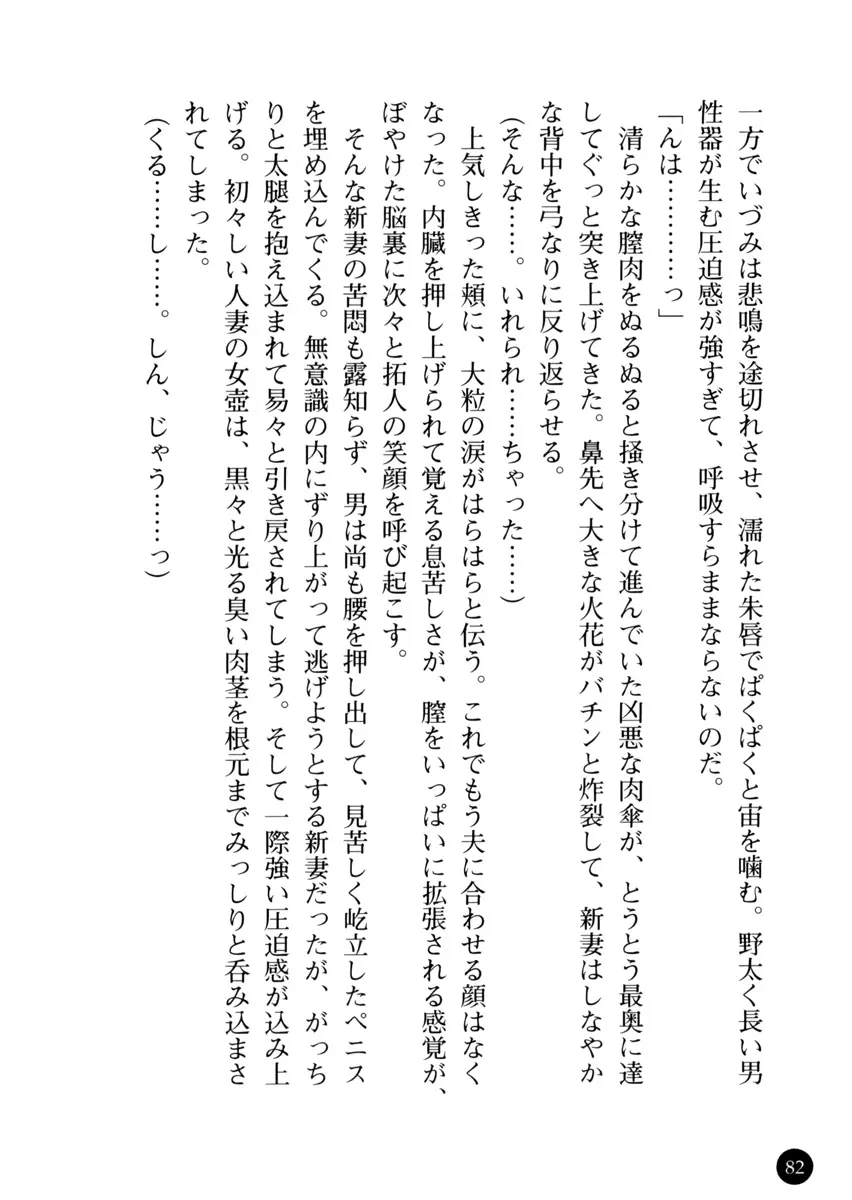 一方でいづみは悲鳴を途切れさせ、濡れた朱唇でぱくぱくと宙を噛む。野太く長い男
性器が生む圧迫感が強すぎて、呼吸すらままならないのだ。
「んは…………っ」
清らかな膣肉をぬるぬると掻き分けて進んでいた凶悪な肉傘が、とうとう最奥に達
してぐっと突き上げてきた。鼻先へ大きな火花がバチンと炸裂して、新妻はしなやか
な背中を弓なりに反り返らせる。
（そんな……。いれられ……ちゃった……）
上気しきった頬に、大粒の涙がはらはらと伝う。これでもう夫に合わせる顔はなく
なった。内臓を押し上げられて覚える息苦しさが、膣をいっぱいに拡張される感覚が、
ぼやけた脳裏に次々と拓人の笑顔を呼び起こす。
そんな新妻の苦悶も露知らず、男は尚も腰を押し出して、見苦しく屹立したペニス
を埋め込んでくる。無意識の内にずり上がって逃げようとする新妻だったが、がっち
りと太腿を抱え込まれて易々と引き戻されてしまう。そして一際強い圧迫感が込み上
げる。初々しい人妻の女壺は、黒々と光る臭い肉茎を根元までみっしりと呑み込まさ
れてしまった。
（くる……し……。しん、じゃう……っ）
82